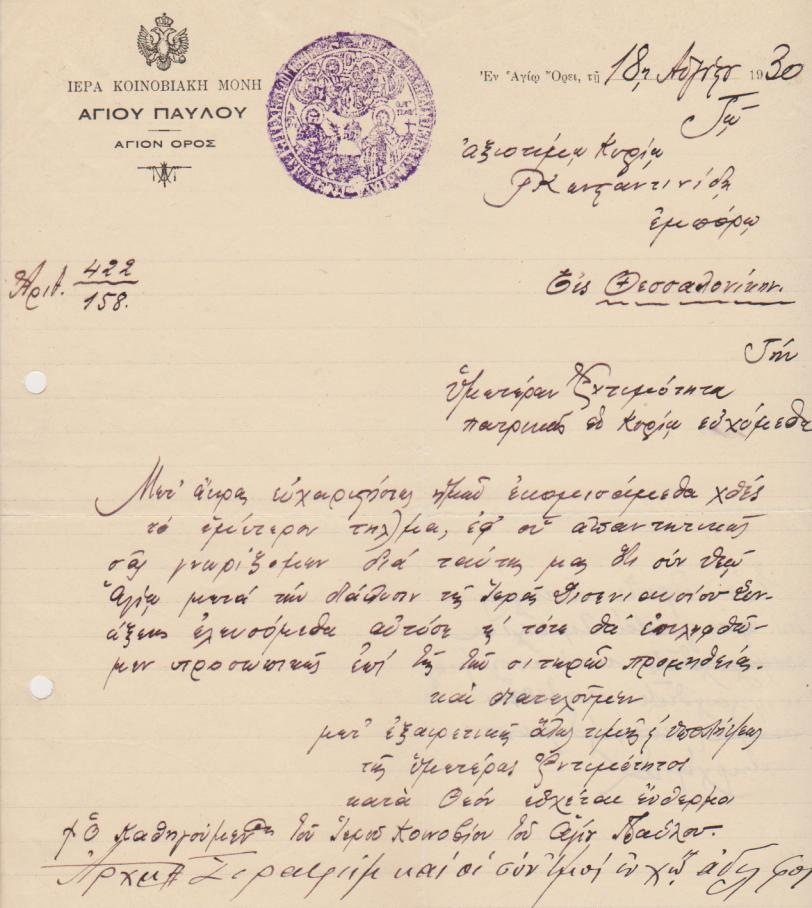 ΙΕΡΑ ΚΟΙΝΟΒΙΑΚΗ ΜΟΝΗ
ΑΓΙΟΥ ΠΑΥΛΟΥ
ΑΓΙΟΝ ΟΡΟΣ
Ἐν Ἁγίῳ Ὄρει, τῇ 18ῃ Αὐγ/στου 1930
Τῷ
ἀξιοτίμῳ Κυρίῳ
Κωνσταντινίδῃ
ἐμπόρῳ
Εἰς Θεσσαλονίκην.
Ἀριθ. 422
158.
Τὴν
ὑμετέραν Ἐντιμότητα
πατρικῶς ἐν Κυρίῳ εὐχόμεθα
Μετ' ἄκρας εὐχαριστήσεως ἡμῶν ἐκομισάμεθα χθὲς
τὸ ὑμέτερον τηλ)μα, ἐφ' οὗ ἀπαντητικῶς
σᾶς γνωρίζομεν διὰ ταύτης μας ὅτι σὺν Θεῷ
Ἁγίῳ μετὰ τὴν διάλυσιν τῆς Ἱερᾶς Δισενιαυσίου Συν-
άξεως ἐλευσόμεθα αὐτόσε κ' τότε θὰ ἐπιληφθῶ-
μεν προσωπικῶς ἐπὶ τῆς τῶν σιτηρῶν προμηθείας.
καὶ διατελοῦμεν
μετ' ἐξαιρετικῆς ὅλως τιμῆς κ' ὑπολήψεως
τῆς ὑμετέρας Ἐντιμότητος
κατὰ Θεὸν εὐχέται ἔνθερμοι
† Ὁ Καθηγούμενος τοῦ Ἱεροῦ Κοινοβίου τοῦ Ἁγίου Παύλου.
Ἀρχιμ Σεραφεὶμ καὶ οἱ σὺν ἐμοὶ ἐν Χῷ ἀδελφοί